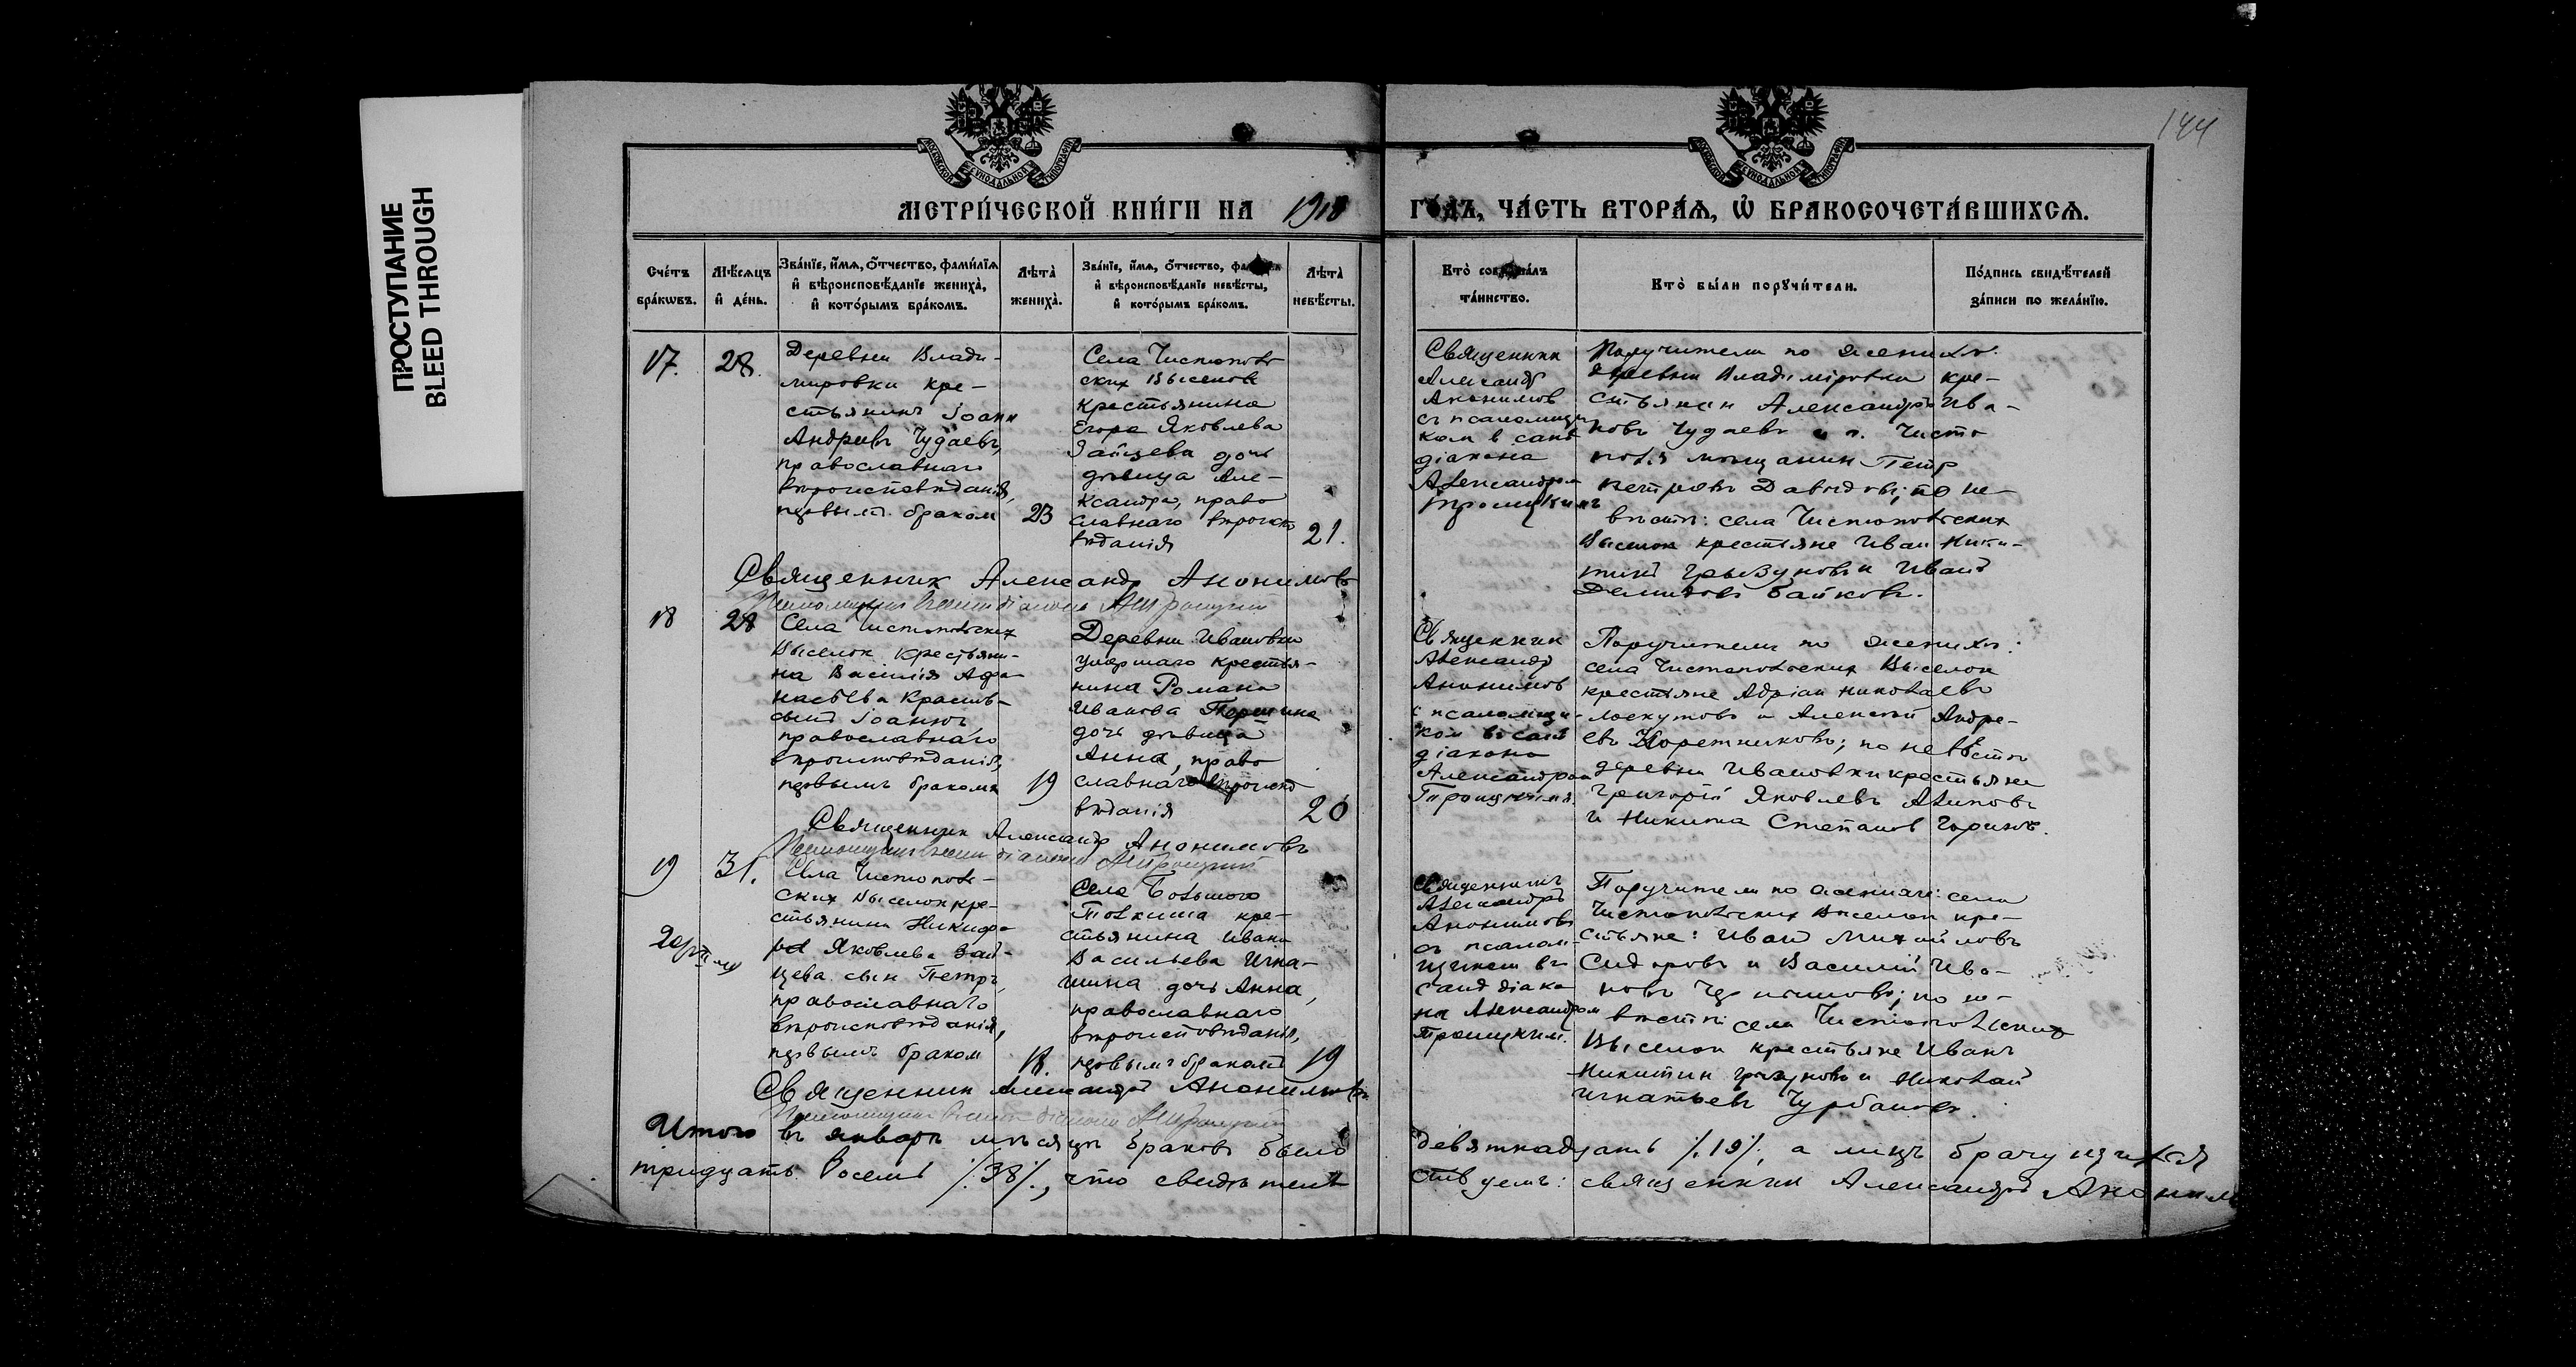 ПРОСТУПАНИЕ
BLEED THROUGH
144
МОСКОВСКОЙ СУНОДАЛЬНОЙ ТИПОГРАФІИ
МОСКОВСКОЙ СУНОДАЛЬНОЙ ТИПОГРАФІИ
МЕТРИ́ЧЕСКОЙ КНИ́ГИ НА 1918 ГО́ДЪ, ЧА́СТЬ ВТОРА́Я, Ѡ БРАКОСОЧЕТА́ВШИХСѦ.
Сче́тъ бра́кѡвъ.
Мѣ́сѧцъ и҆ де́нь.
Зва́нїе, и҆́мѧ, ѻ҆́тчество, фами́лїѧ
и҆ вѣроисповѣ́данїе жениха̀,
и҆ кото́рымъ бра́комъ.
Лѣта̀ жениха̀.
Зва́нїе, и҆́мѧ, ѻ҆́тчество, фами́лїѧ
и҆ вѣроисповѣ́данїе невѣ́сты,
и҆ кото́рымъ бра́комъ.
Лѣта̀ невѣ́сты.
Кто̀ соверша́лъ та́инство.
Кто̀ бы́ли порꙋчи́тели.
По́дпись свидѣ́телей за́писи по жела́нїю.
17.
28.
Деревни Влади-
мировки кре-
стьянинъ Іоанн
Андреевъ Чудаевъ,
православнаго
вѣроисповѣданія,
первымъ браком
23
Села Чистополь
ских Выселок
крестьянина
Егора Яковлева
Зайцева дочь
дѣвица Але-
ксандра, право
славнаго вѣроиспо
вѣданія
21.
Священник
Александр
Анонимов
съ псаломщи
ком в санѣ
діакона
Александром
Троицкимъ
Поручители по женихѣ:
деревни Владиміровки кре-
стьянин Александръ Ива-
новъ Чудаевъ и г. Чисто
поля мѣщанин Петр
Петровъ Давыдовъ; по не-
вѣстѣ: села Чистопольских
Выселок крестьяне Иван Ники-
тинъ Грызуновъ и Иванъ
Демидовъ Байковъ.
Священник Александр Анонимовъ
Псаломщик в санѣ діакона А.Троицкій
18
28
Села Чистопольских
Выселок крестьяни-
на Василія Афа-
насьева
сынъ Іоаннъ
православнаго
вѣроисповѣданія,
первымъ бракомъ
19
Деревни Ивановки
умершаго крестья-
нина Романа
Иванова
дочь дѣвица
Анна, право
славнаго вѣроиспо
вѣданія
20
Священник
Александр
Анонимов
с псаломщи-
ком въ санѣ
діакона
Александром
Троицкимъ.
Поручители по женихѣ:
села Чистопольских Выселок
крестьяне Адріан Николаевъ
Лоскутовъ и Алексѣй Андре-
евъ Коретниковъ; по невѣстѣ
деревни Ивановки крестьяне
Григорій Яковлевъ
и Никита Степанов
Священник Александр Анонимовъ
Псаломщик в санѣ діакона А.Троицкій
19
31.
Села Чистополь-
ских Выселок кре-
стьянина Никифо
ра Яковлева Зай-
цева сын Петръ,
православнаго
вѣроисповѣданія,
первымъ браком
18.
Села Большого
Толкиша кре-
стьянина Ивана
Васильева Игна-
шина дочь Анна,
православнаго
вѣроисповѣданія,
первымъ бракомъ
19
Священникъ
Александръ
Анонимовъ
съ псалом-
щиком въ
санѣ діако
на Александром
Троицким.
Поручители по женихѣ: села
Чистопольских Выселок кре-
стьяне: Иван Михайловъ
Сидоровъ и Василій Ива-
новъ; по не-
вѣстѣ: села Чистопольских
Выселок крестьяне Иванъ
Никитин Грызуновъ и Николай
Игнатьевъ Чурбановъ.
Священник Александр Анонимовъ
Псаломщик в санѣ діакона А.Троицкій
Итого въ январѣ мѣсяцѣ браковъ было девятнадцать /.19/., а лицъ брачущихся
тридцать восемь /.38/., что свидѣтельствуемъ: священник Александръ Аноним